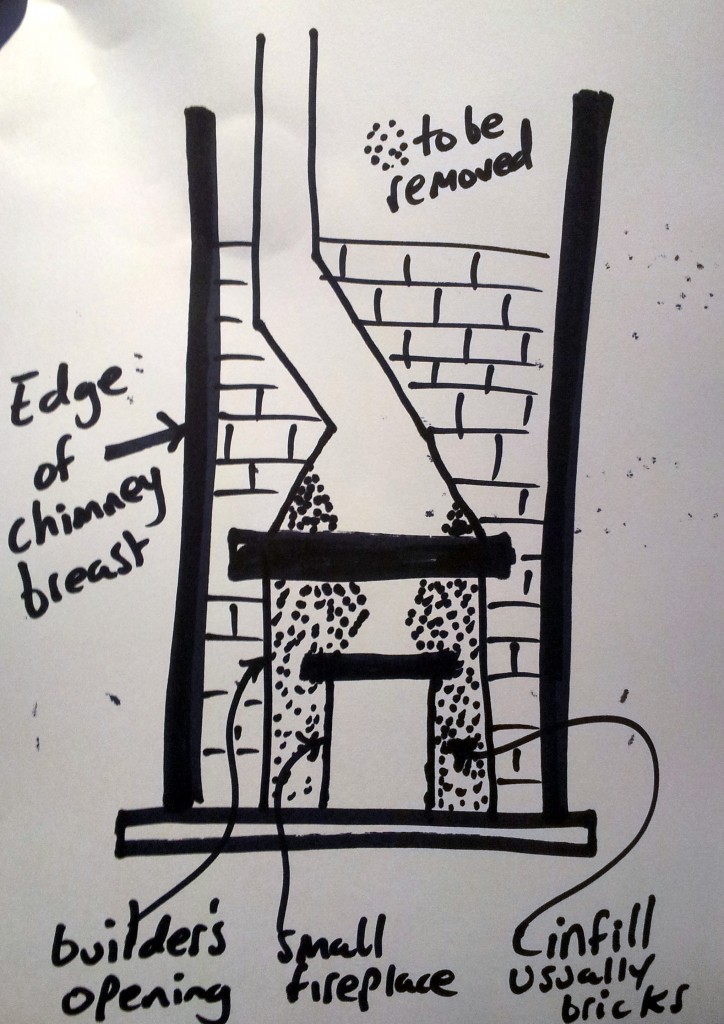 to be
removed
Edge
of
chimney
breast
builder's
opening
small
fireplace
infill
usually
bricks